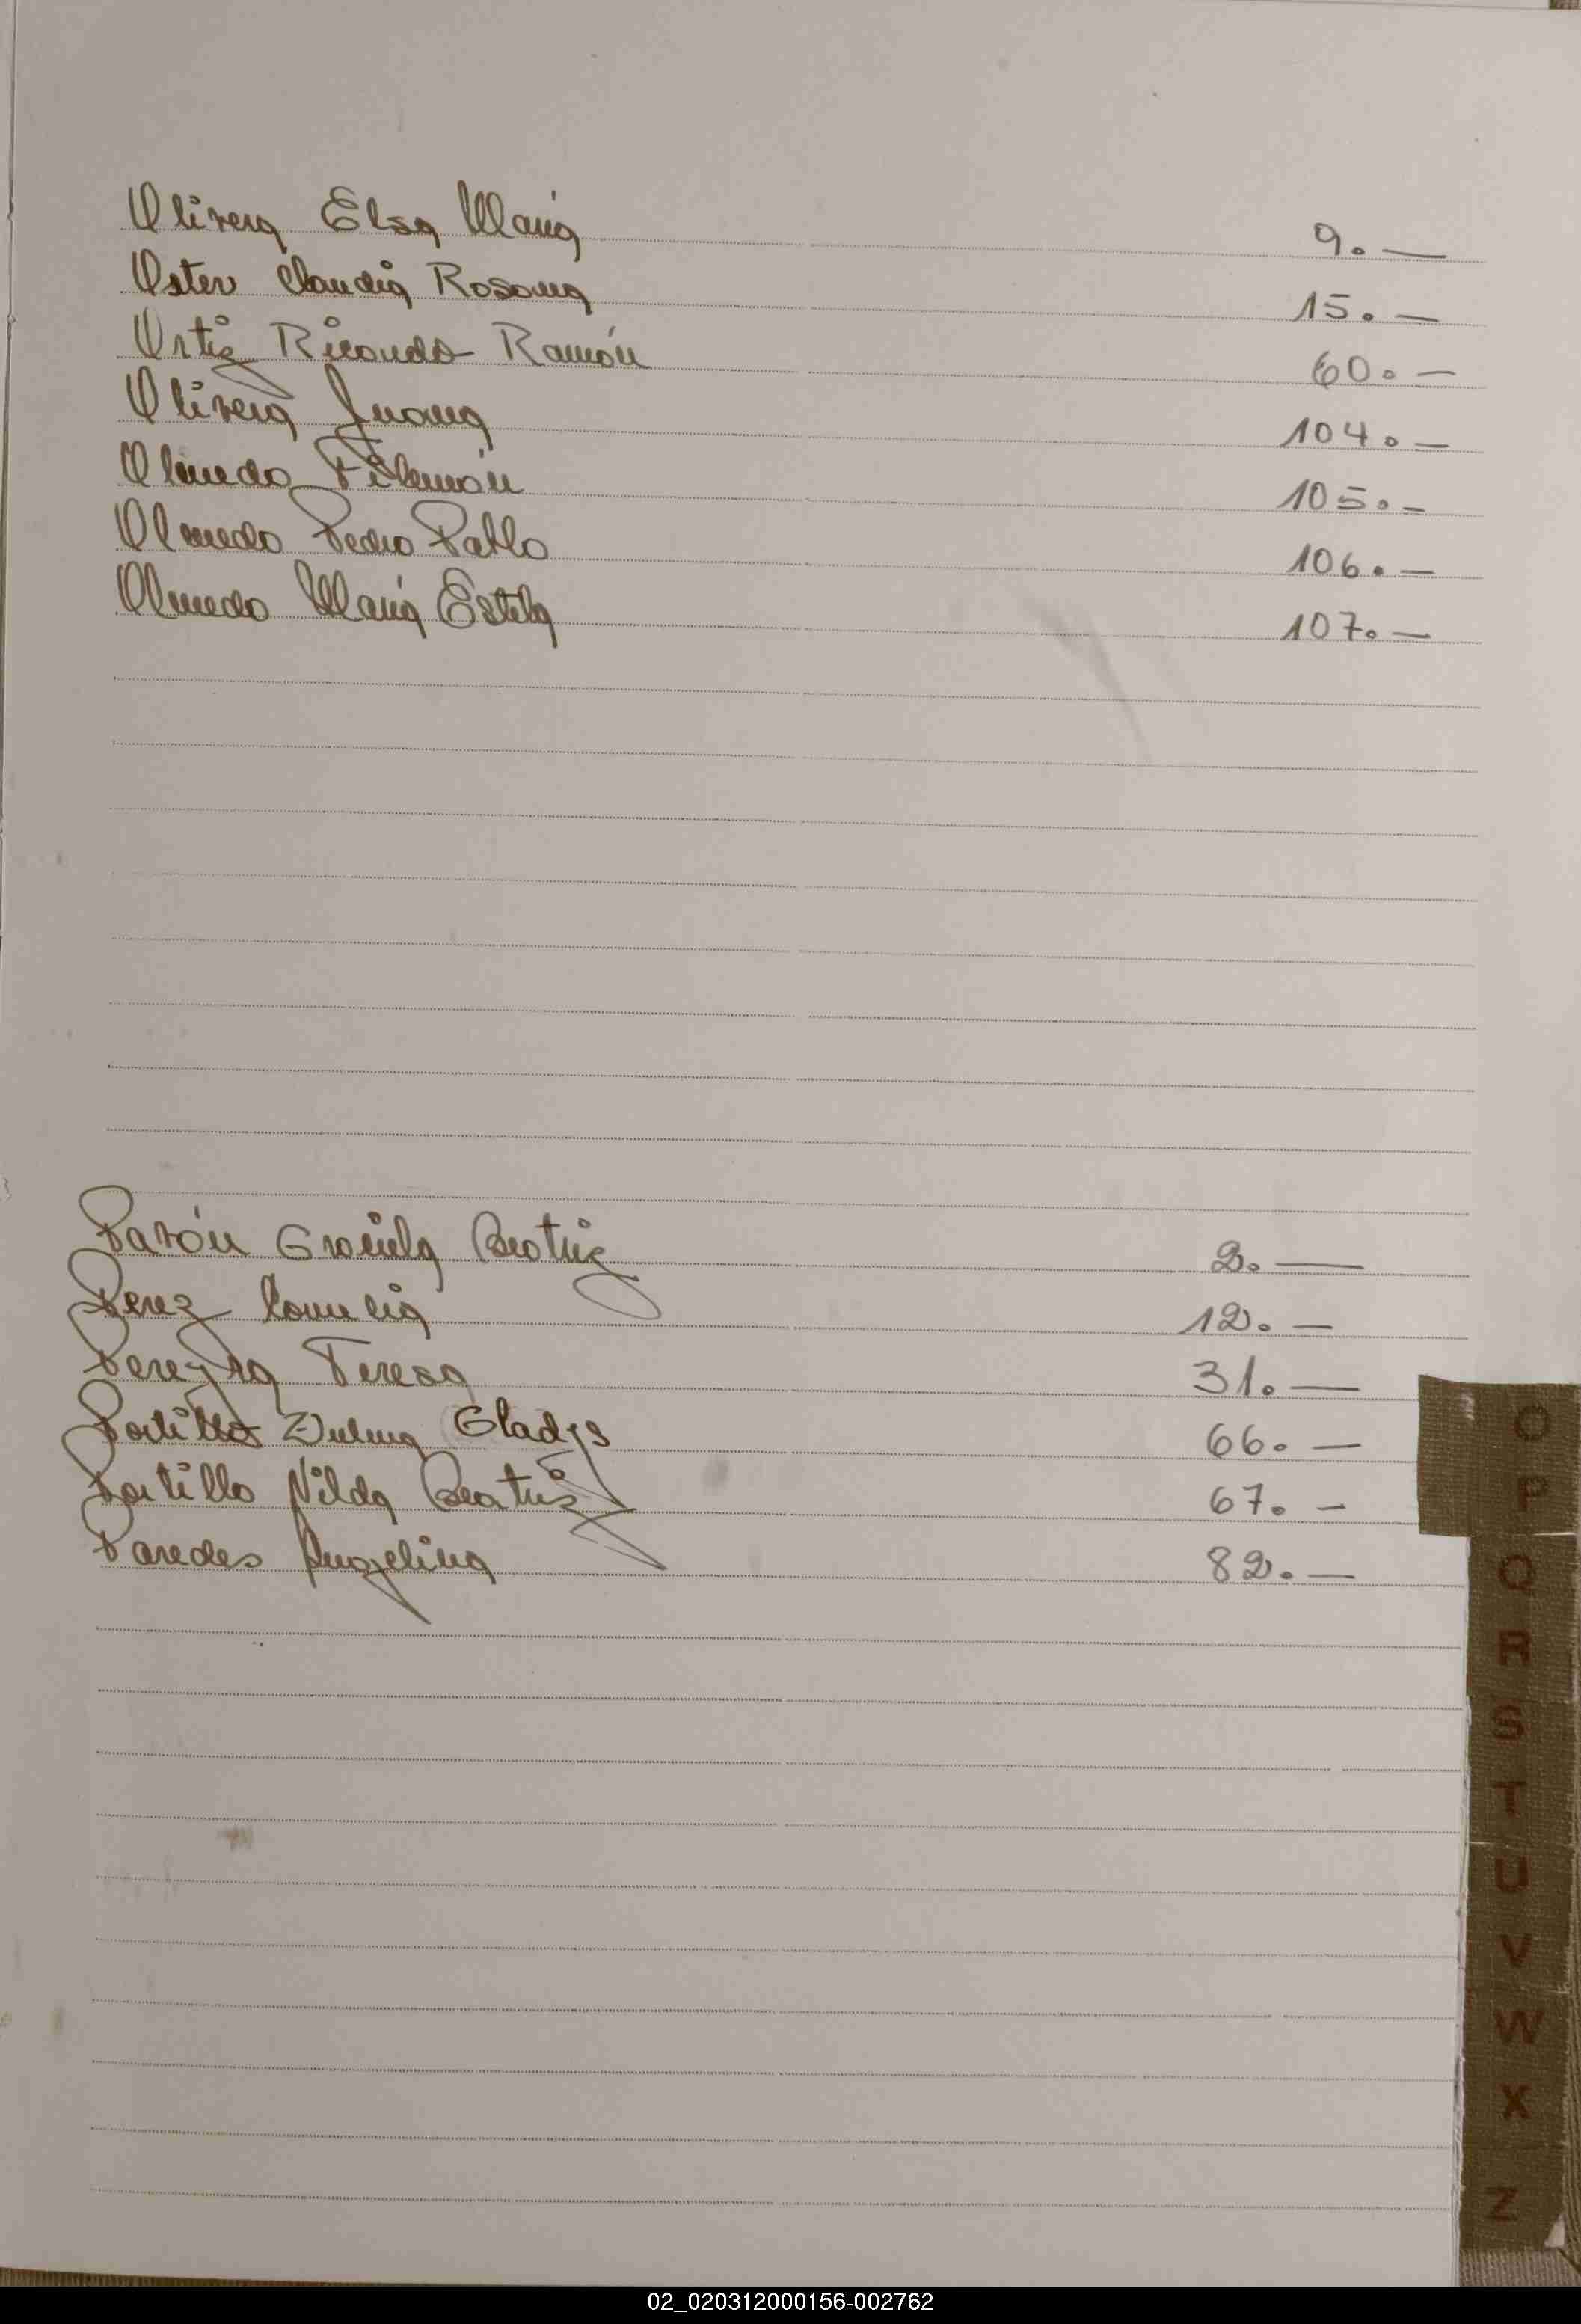 Olivera Elsa María 9.—
Oster Claudia Rosana 15.—
Ortiz Ricardo Ramón 60.—
Olivera Juana 104.—
Olmedo Filemón 105.—
Olmedo Pedro Pablo 106.—
Olmedo María Estela 107.—
Pavón Graciela Beatriz 2.—
Perez 12.—
Pereyra Teresa 31.—
Portillo Zulma Gladys 66.—
Portillo Nilda Beatriz 67.—
Paredes Angelina 82.—
O
P
Q
R
S
T
U
V
W
X
Z
02_020312000156-002762